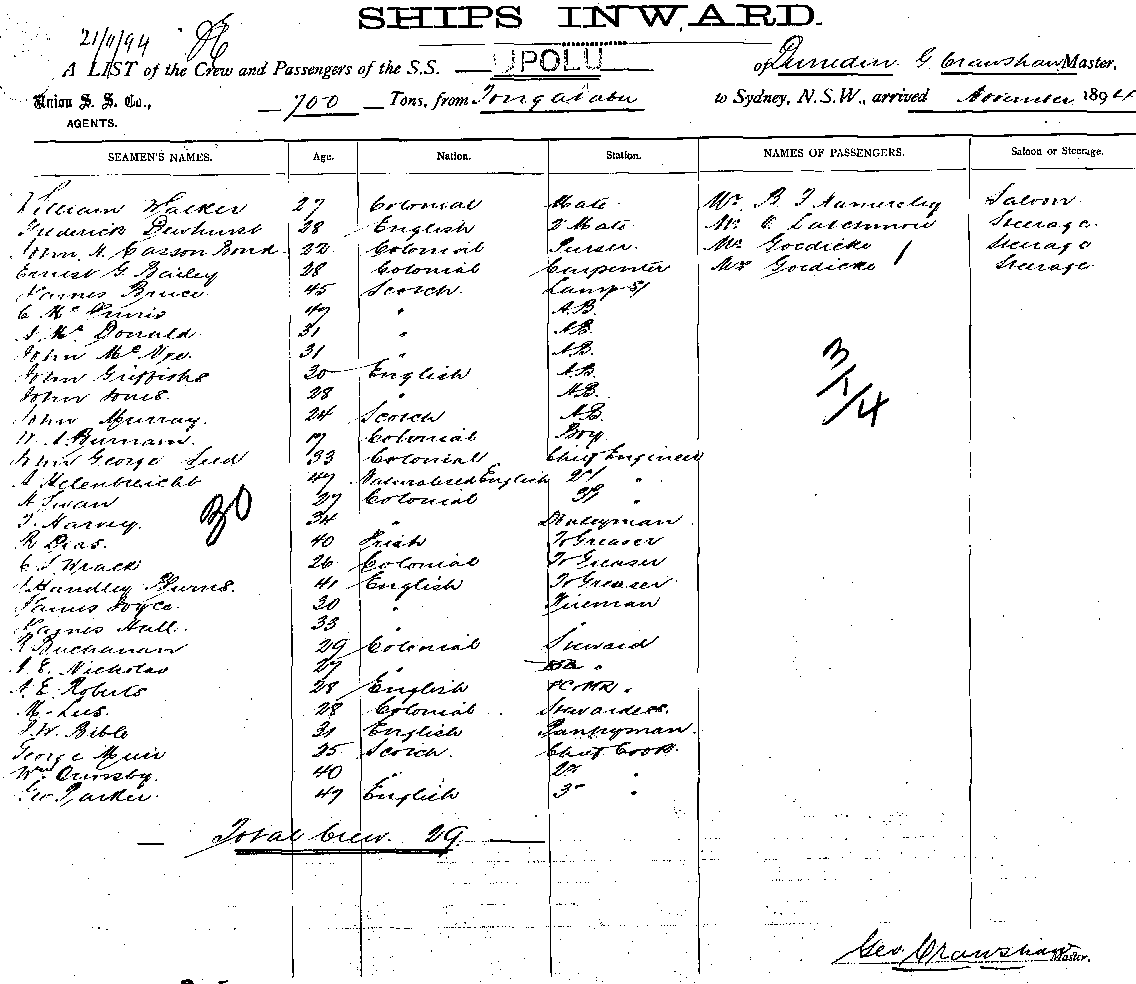 SHIPS INWARD.
21/11/94
A LIST of the Crew and Passengers of the S.S. UPOLU of Dunedin G Crawshaw Master,
Union S. S. Co., 700 Tons, from Tongatabu to Sydney, N.S.W., arrived November 1894
AGENTS.
SEAMEN'S NAMES. Age. Nation. Station. NAMES OF PASSENGERS. Saloon or Steerage.
William Walker 27 Colonial Mate Mr. B. Saloon
Frederick Dewhurst 28 English 2 Mate Steerage
John H. Casson Bond 22 Colonial Purser Mr Goedicke Steerage
Ernest G Bailey 28 Colonial Carpenter Mrs Goedicke Steerage
James Bruce 45 Scotch Lamps
C Mc Innis 47 " A.B.
J Mc Donald 31 " A.B.
John Mc Vye 31 " A.B.
John Griffiths 30 English A.B.
John Jones 28 " A.B.
John Murray 24 Scotch A.B.
Burnam 17 Colonial Boy
John George Seed 33 Colonial Chief Engineer
Helenbreicht 47 Naturalised English 2d "
A Swan 27 Colonial 3d "
30
3/1/4
T. Harvey 34 " Donkeyman
R Dias 40 Irish Greaser
C J Wrack 26 Colonial Greaser
Handley Burns 41 English Greaser
James Joyce 30 " Fireman
James Hall 33 " "
R Buchanan 29 Colonial Steward
A. E. Nicholas 27 " "
A. E. Roberts 28 English "
M. Lus 28 Colonial Stewardess
J. W. Bible 31 English Pantryman
George Muir 25 Scotch Chief Cook
Wm Ormsby 40 " 2nd "
Geo Parker 47 English 3rd "
Total Crew. 29
Geo Crawshaw Master.